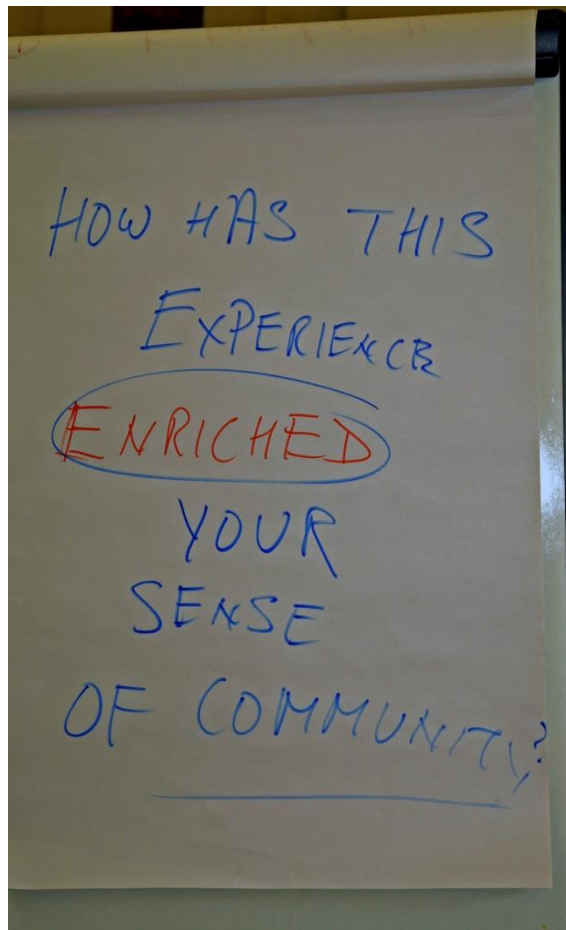 HOW HAS THIS
EXPERIENCE
ENRICHED
YOUR
SENSE
OF COMMUNITY?